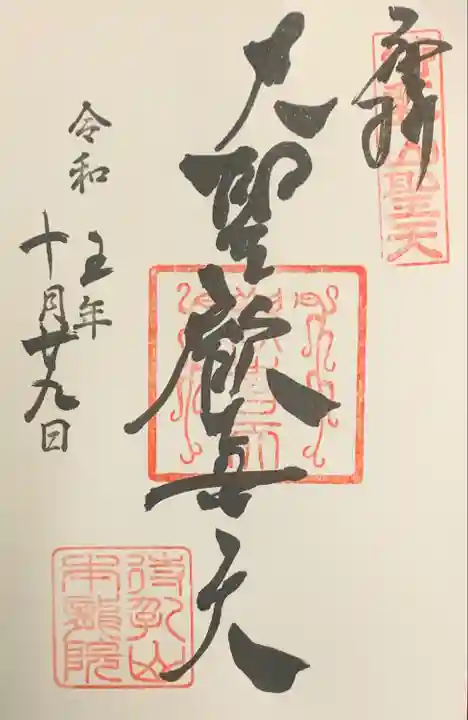 奉拝
大聖歓喜天
令和五年
十月廿九日
待乳山
本龍院